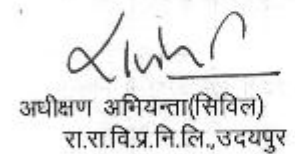 अधीक्षण अभियन्ता(सिविल)
रा.रा.वि.प्र.नि.लि.,उदयपुर